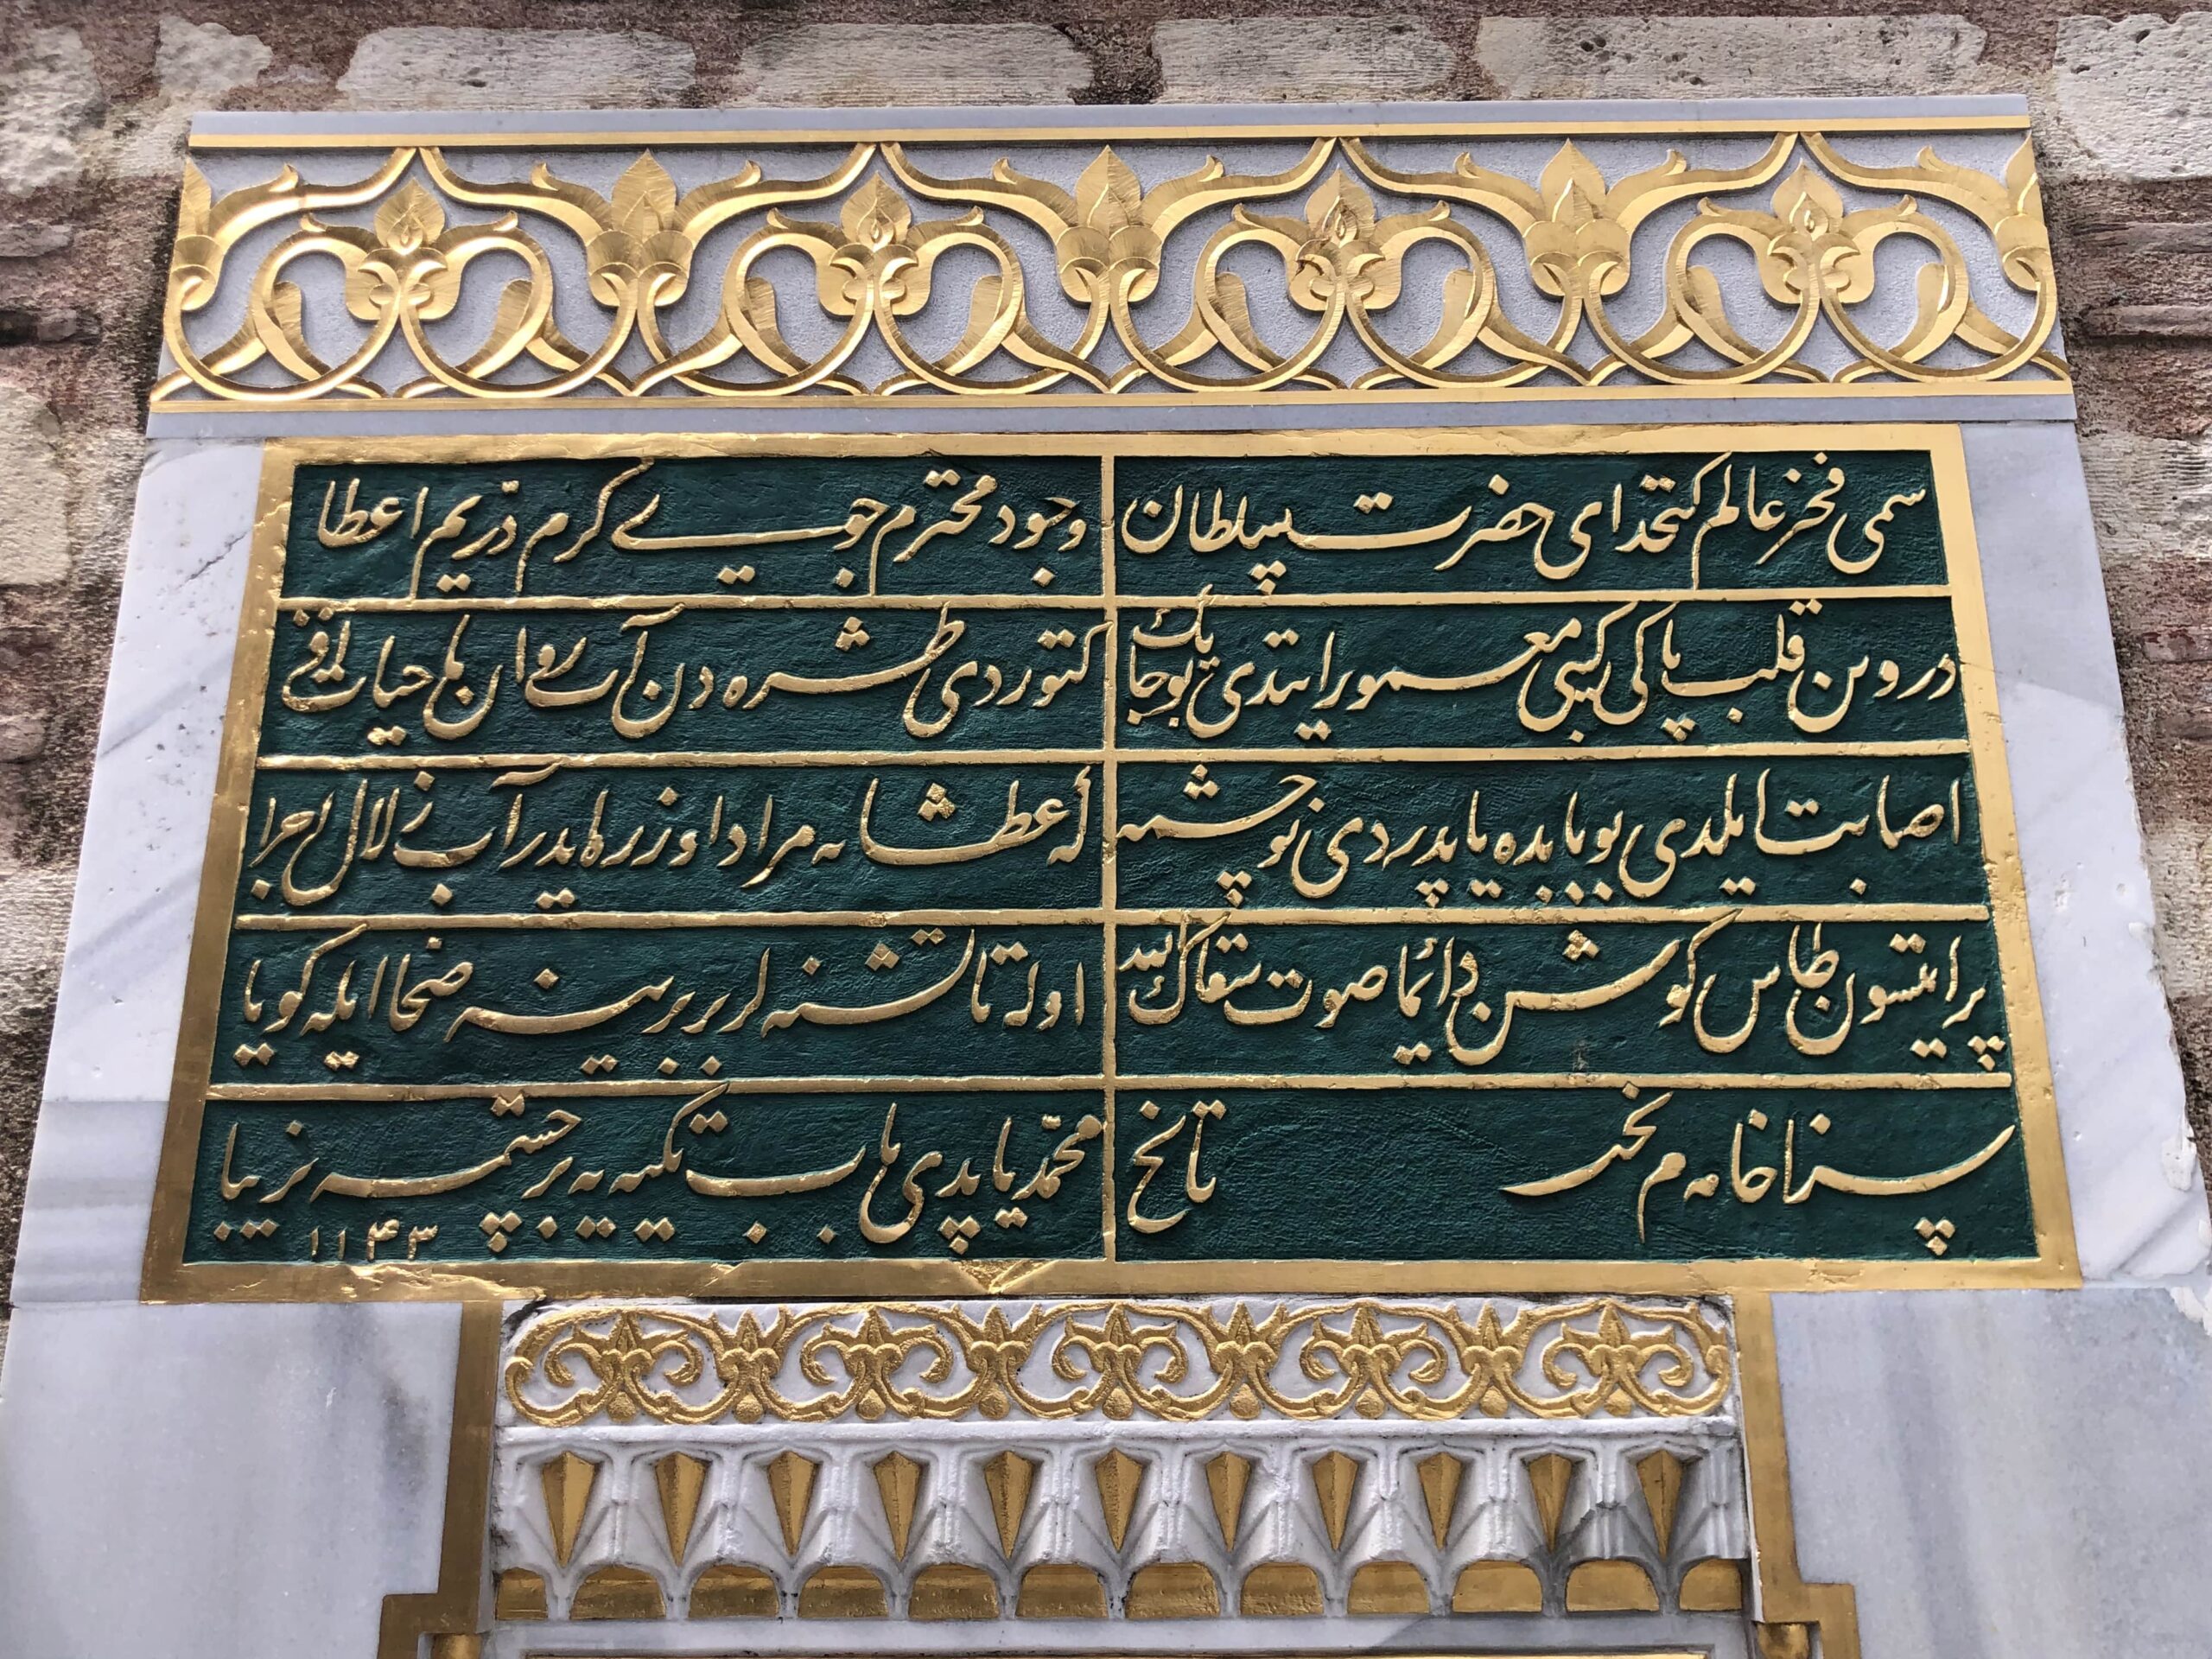 سمی فخر عالم کتخدای حضرت سلطان
وجود محترم جوی کرم ذریم اعطا
درون قلب پاکی کبی معمور ایتدی بوجایك
کتوردی طشره دن آب روان باب حیات
اصابت ایلدی بویابده یاپدردی نو چشمه
له عطشانه مراد اوزره ایدر آب زلال اجرا
پر ایتسون طاس کوشن دائما صوت سقاك الله
اوله تا تشنه لر بر برینه ضحا ایله کویا
سزا خامه م تاریخ
محمد یاپدی باب تکیه یه بر چشمه زیبا
١١٤٣